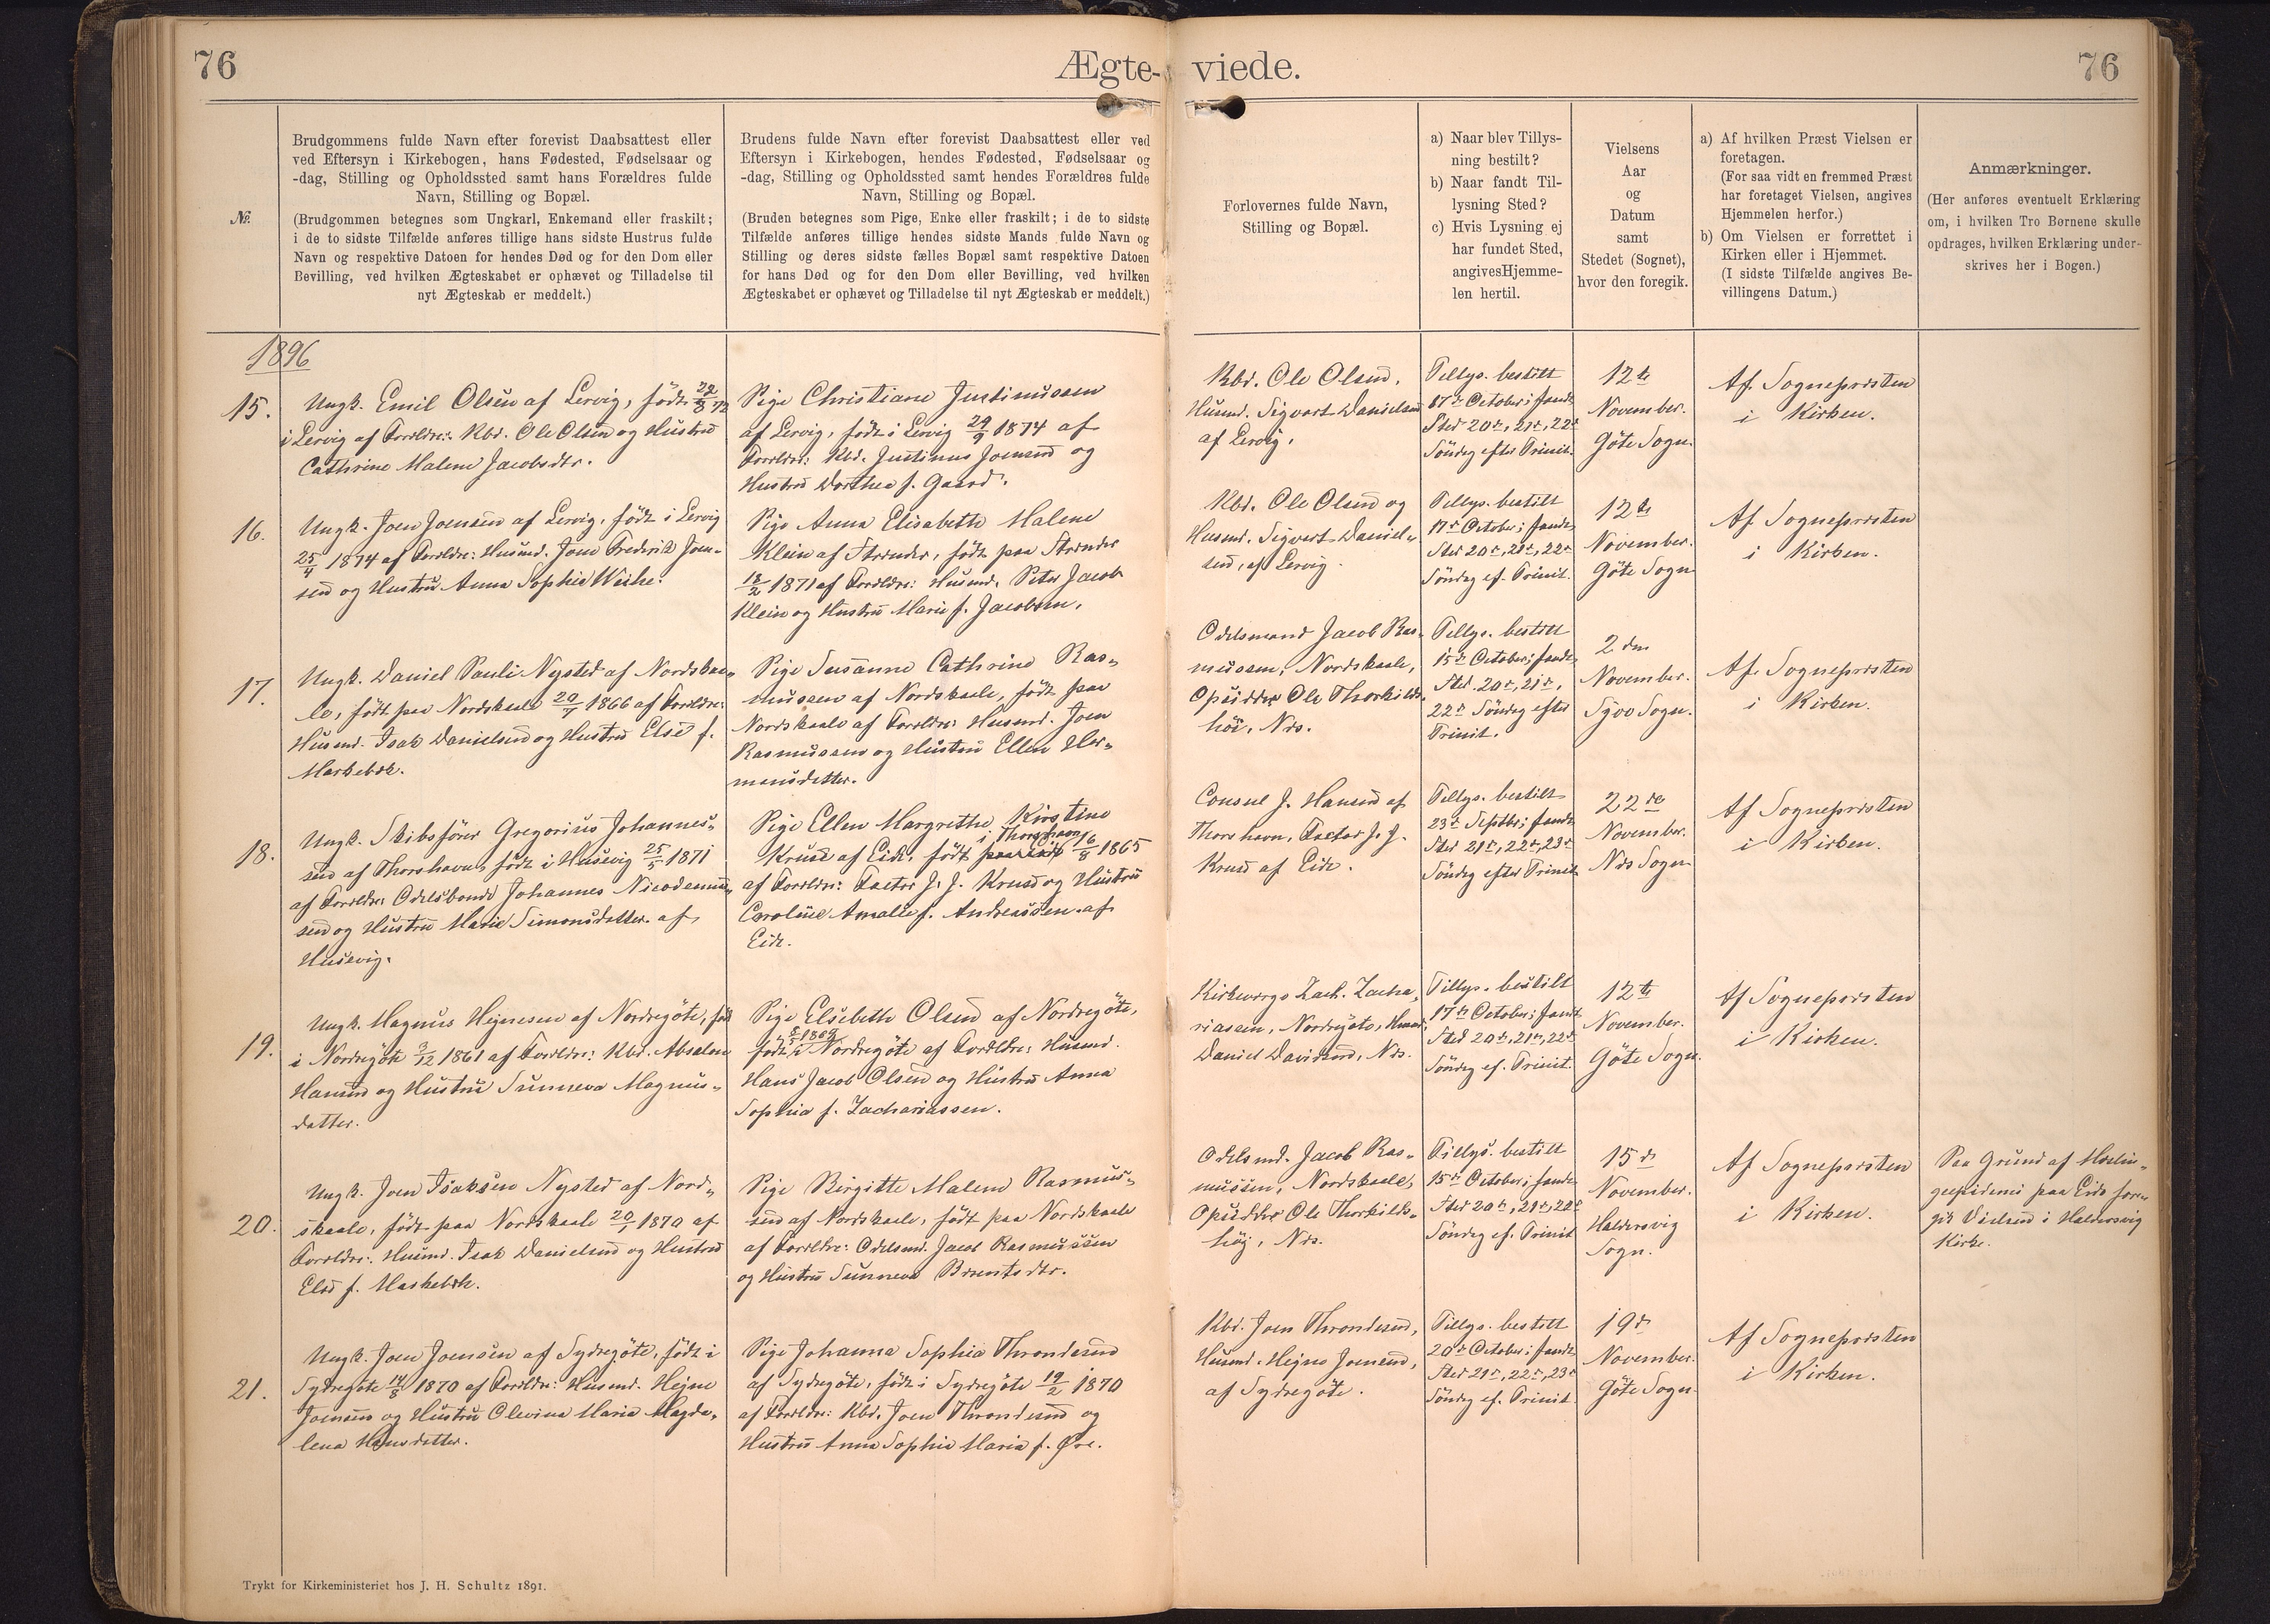 76
Ægte-
viede.
76
№.
Brudgommens fulde Navn efter forevist Daabsattest eller
ved Eftersyn i Kirkebogen, hans Fødested, Fødselsaar og
-dag, Stilling og Opholdssted samt hans Forældres fulde
Navn, Stilling og Bopæl.
(Brudgommen betegnes som Ungkarl, Enkemand eller fraskilt;
i de to sidste Tilfælde anføres tillige hans sidste Hustrus fulde
Navn og respektive Datoen for hendes Død og for den Dom eller
Bevilling, ved hvilken Ægteskabet er ophævet og Tilladelse til
nyt Ægteskab er meddelt.)
Brudens fulde Navn efter forevist Daabsattest eller ved
Eftersyn i Kirkebogen, hendes Fødested, Fødselsaar og
-dag, Stilling og Opholdssted samt hendes Forældres fulde
Navn, Stilling og Bopæl.
(Bruden betegnes som Pige, Enke eller fraskilt; i de to sidste
Tilfælde anføres tillige hendes sidste Mands fulde Navn og
Stilling og deres sidste fælles Bopæl samt respektive Datoen
for hans Død og for den Dom eller Bevilling, ved hvilken
Ægteskabet er ophævet og Tilladelse til nyt Ægteskab er meddelt.)
Forlovernes fulde Navn,
Stilling og Bopæl.
a) Naar blev Tillys-
ning bestilt?
b) Naar fandt Til-
lysning Sted?
c) Hvis Lysning ej
har fundet Sted,
angivesHjemme-
len hertil.
Vielsens
Aar
og
Datum
samt
Stedet (Sognet),
hvor den foregik.
a) Af hvilken Præst Vielsen er
foretagen.
(For saa vidt en fremmed Præst
har foretaget Vielsen, angives
Hjemmelen herfor.)
b) Om Vielsen er forrettet i
Kirken eller i Hjemmet.
(I sidste Tilfælde angives Be-
villingens Datum.)
Anmærkninger.
(Her anføres eventuelt Erklæring
om, i hvilken Tro Børnene skulle
opdrages, hvilken Erklæring under-
skrives her i Bogen.)
1896
15.
Ungk. Emil Olsen af Lervig, födt
i Lervig af Forældre: Kbd. Ole Olsen og Hustru
Cathrine Malene Jacobsdtr.
Pige Christiane Justinussen
af Lervig, födt i Lervig 29/9 1874 af
Forældre: Kbd. Justinus Joensen og
Hustru Dorthea f. Gaard.
Kbd. Ole Olsen,
Husmd. Sigvert Danielsen
af Lervig.
Tillys. bestilt
17de October; fandt
Sted 20de, 21de, 22de
Söndag efter Trinit.
12te
November.
Göte Sogn.
Af Sognepræsten
i Kirken.
16.
Ungk. Joen Joensen af Lervig, födt i Lervig
25/4 1874 af Forældre: Husmd. Joen Frederik Joen-
sen og Hustru Anna Sophie Weihe.
Pige Anna Elisabeth Malene
Klein af Strender, födt paa Strender
18/2 1871 af Forældre: Husmd. Peter Jacob
Klein og Hustru Marie f. Jacobsen.
Kbd. Ole Olsen og
Husmd. Sigvert Daniel-
sen, af Lervig.
Tillys. bestilt
17de October; fandt
Sted 20de, 21de, 22de
Söndag ef. Trinit.
12te
November.
Göte Sogn
Af Sognepræsten
i Kirken.
17.
Ungk. Daniel Pauli Nysted af Nordskaa-
le, födt paa Nordskaale 20/7 1866 af Forældre:
Husmd. Isak Danielsen og Hustru Else f.
Morkebæk.
Pige Susanne Cathrine Ras-
mussen af Nordskaale, födt paa
Nordskaale af Forældre: Husmd. Joen
Rasmussen og Hustru Ellen Her-
mansdatter.
Odelsmand Jacob Ras-
mussen, Nordskaale,
Opsidder Ole Thorkilds-
höi, Nds.
Tillys. bestilt
15de October; fandt
Sted 20de, 21de,
22de Söndag efter
Trinit.
2den
November.
Af Sognepræsten
i Kirken.
18.
Ungk. Skibsförer Gregorius Johannes-
sen af Thorshavn, födt i Husevig 25/5 1871
af Forældre: Odelsbonde Johannes Nicodemus-
sen og Hustru Marie Simonsdatter af
Husevig.
Pige Ellen Margrethe Kirstine
i Thorshavn
Kruse af Eide, födt 16/8 1865
af Forældre: Factor J. J. Kruse og Hustru
Caroline Amalie f. Andreassen af
Eide.
Consul J. Hansen af
Thorshavn, Factor J. J.
Kruse af Eide.
Tillys. bestilt
23de Septbr; fandt
Sted 21de, 22de, 23de
Söndag efter Trinit.
22de
November.
Nds Sogn
Af Sognepræsten
i Kirken.
19.
Ungk. Magnus Hejnesen af Nordregöte, födt
i Nordregöte 3/12 1861 af Forældre: Kbd. Absalon
Hansen og Hustru Sunneva Magnus-
datter.
Pige Elsebeth Olsen af Nordregöte,
födt i Nordregöte af Forældre: Husmd.
Hans Jacob Olsen og Hustru Anna
Sophia f. Zachariassen.
Kirkeværge Zach. Zacha-
riassen, Nordregöte, Husmd.
Daniel Davidsen, Nds.
Tillys. bestilt
17de October; fandt
Sted 20de, 21de, 22de
Söndag ef. Trinit.
12te
November.
Göte Sogn.
Af Sognepræsten
i Kirken.
20.
Ungk. Joen Isaksen Nysted af Nord-
skaale, födt paa Nordskaale 20/1 1870 af
Forældre: Husmd. Isak Danielsen og Hustru
Else f. Morkebæk.
Pige Birgitte Malene Rasmus-
sen af Nordskaale, födt paa Nordskaale
af Forældre: Odelsmd. Jacob Rasmussen
og Hustru Sunneva
Odelsmd. Jacob Ras-
mussen, Nordskaale,
Opsidder Ole Thorkilds-
höj, Nds.
Tillys. bestilt
15de October; fandt
Sted 20de, 21de, 22de
Söndag ef. Trinit
15de
November.
Haldersvig
Sogn.
Af Sognepræsten
i Kirken.
Paa Grund af Mæslin-
geepidemi paa Eide fore-
gik Vielsen i Haldersvig
Kirke.
21.
Ungk. Joen Joensen af Sydregöte, födt i
Sydregöte 14/5 1870 af Forældre: Husmd. Hejne
Joensen og Hustru Olevina Maria Magda-
lena Hansdatter.
Pige Johanna Sophia Throndesen
af Sydregöte, födt i Sydregöte 19/2 1870
af Forældre: Kbd. Joen Throndesen og
Hustru Anna Sophie Maria f. Øre.
Kbd. Joen Throndesen,
Husmd. Hejne Joensen,
af Sydregöte.
Tillys. bestilt
20de October; fandt
Sted 21de, 22de, 23de
Söndag ef. Trinit.
19de
November.
Göte Sogn
Af Sognepræsten
i Kirken.
Trykt for Kirkeministeriet hos J. H. Schultz 1891.